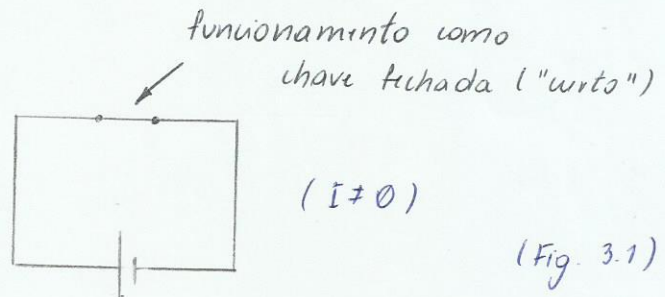 funcionamento como
chave fechada ("curto")
(I ≠ 0)
(Fig. 3.1)